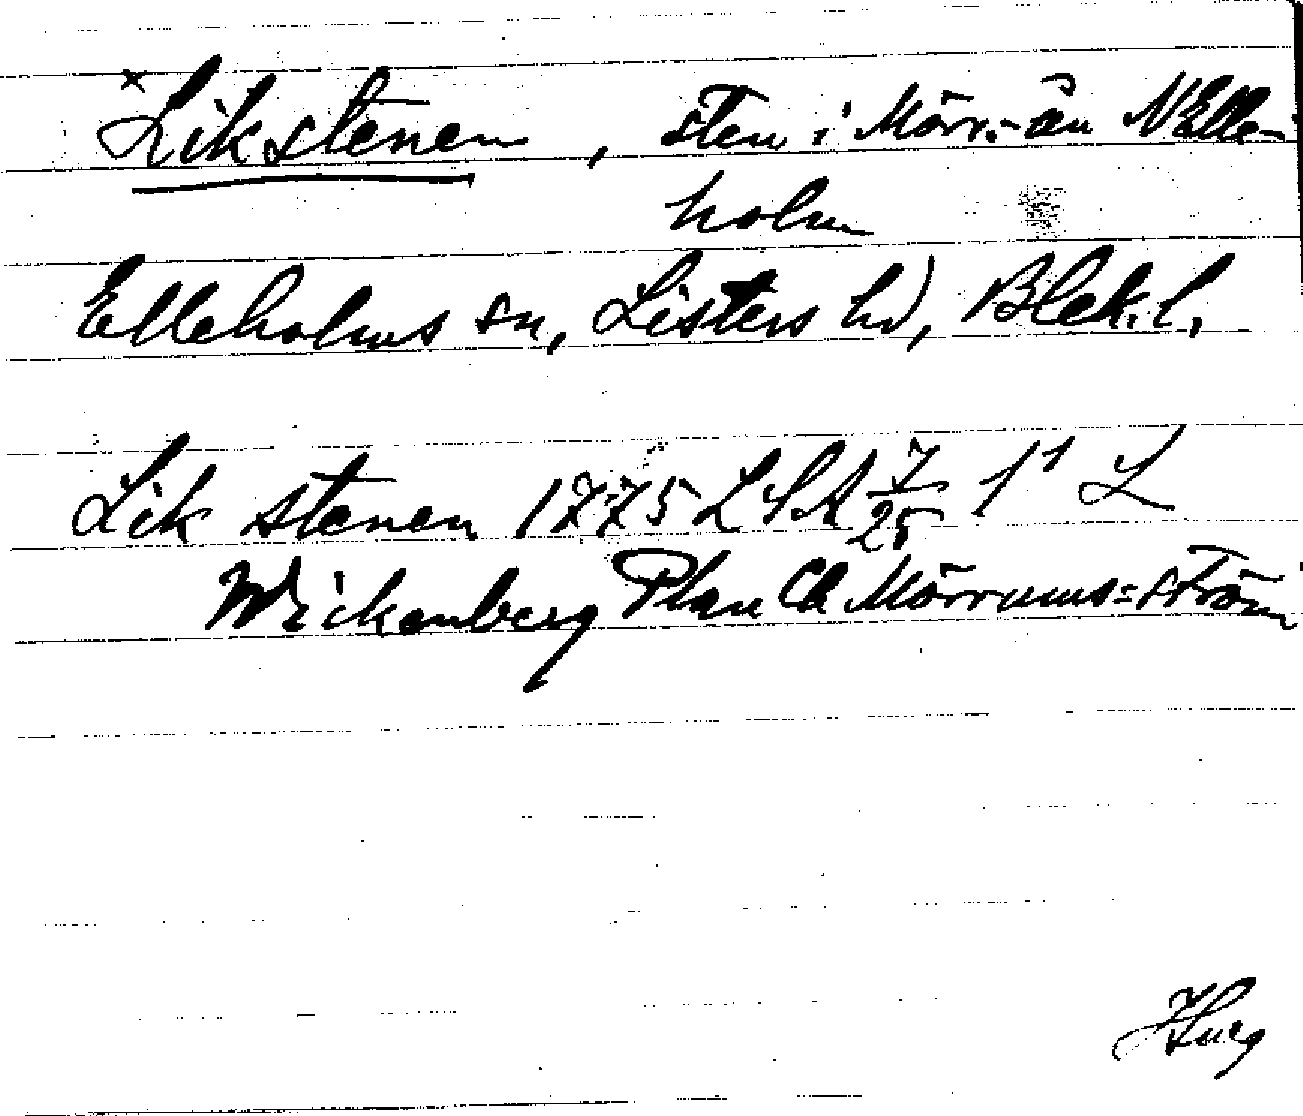 ×Likstenen, sten i Mörr.-ån N Elle-
holm
Elleholms sn, Listers hd, Blek. l.
Lik stenen 1775 LSA 7/25 1¹ L
Wickenberg Plan Ch Mörrums=ström